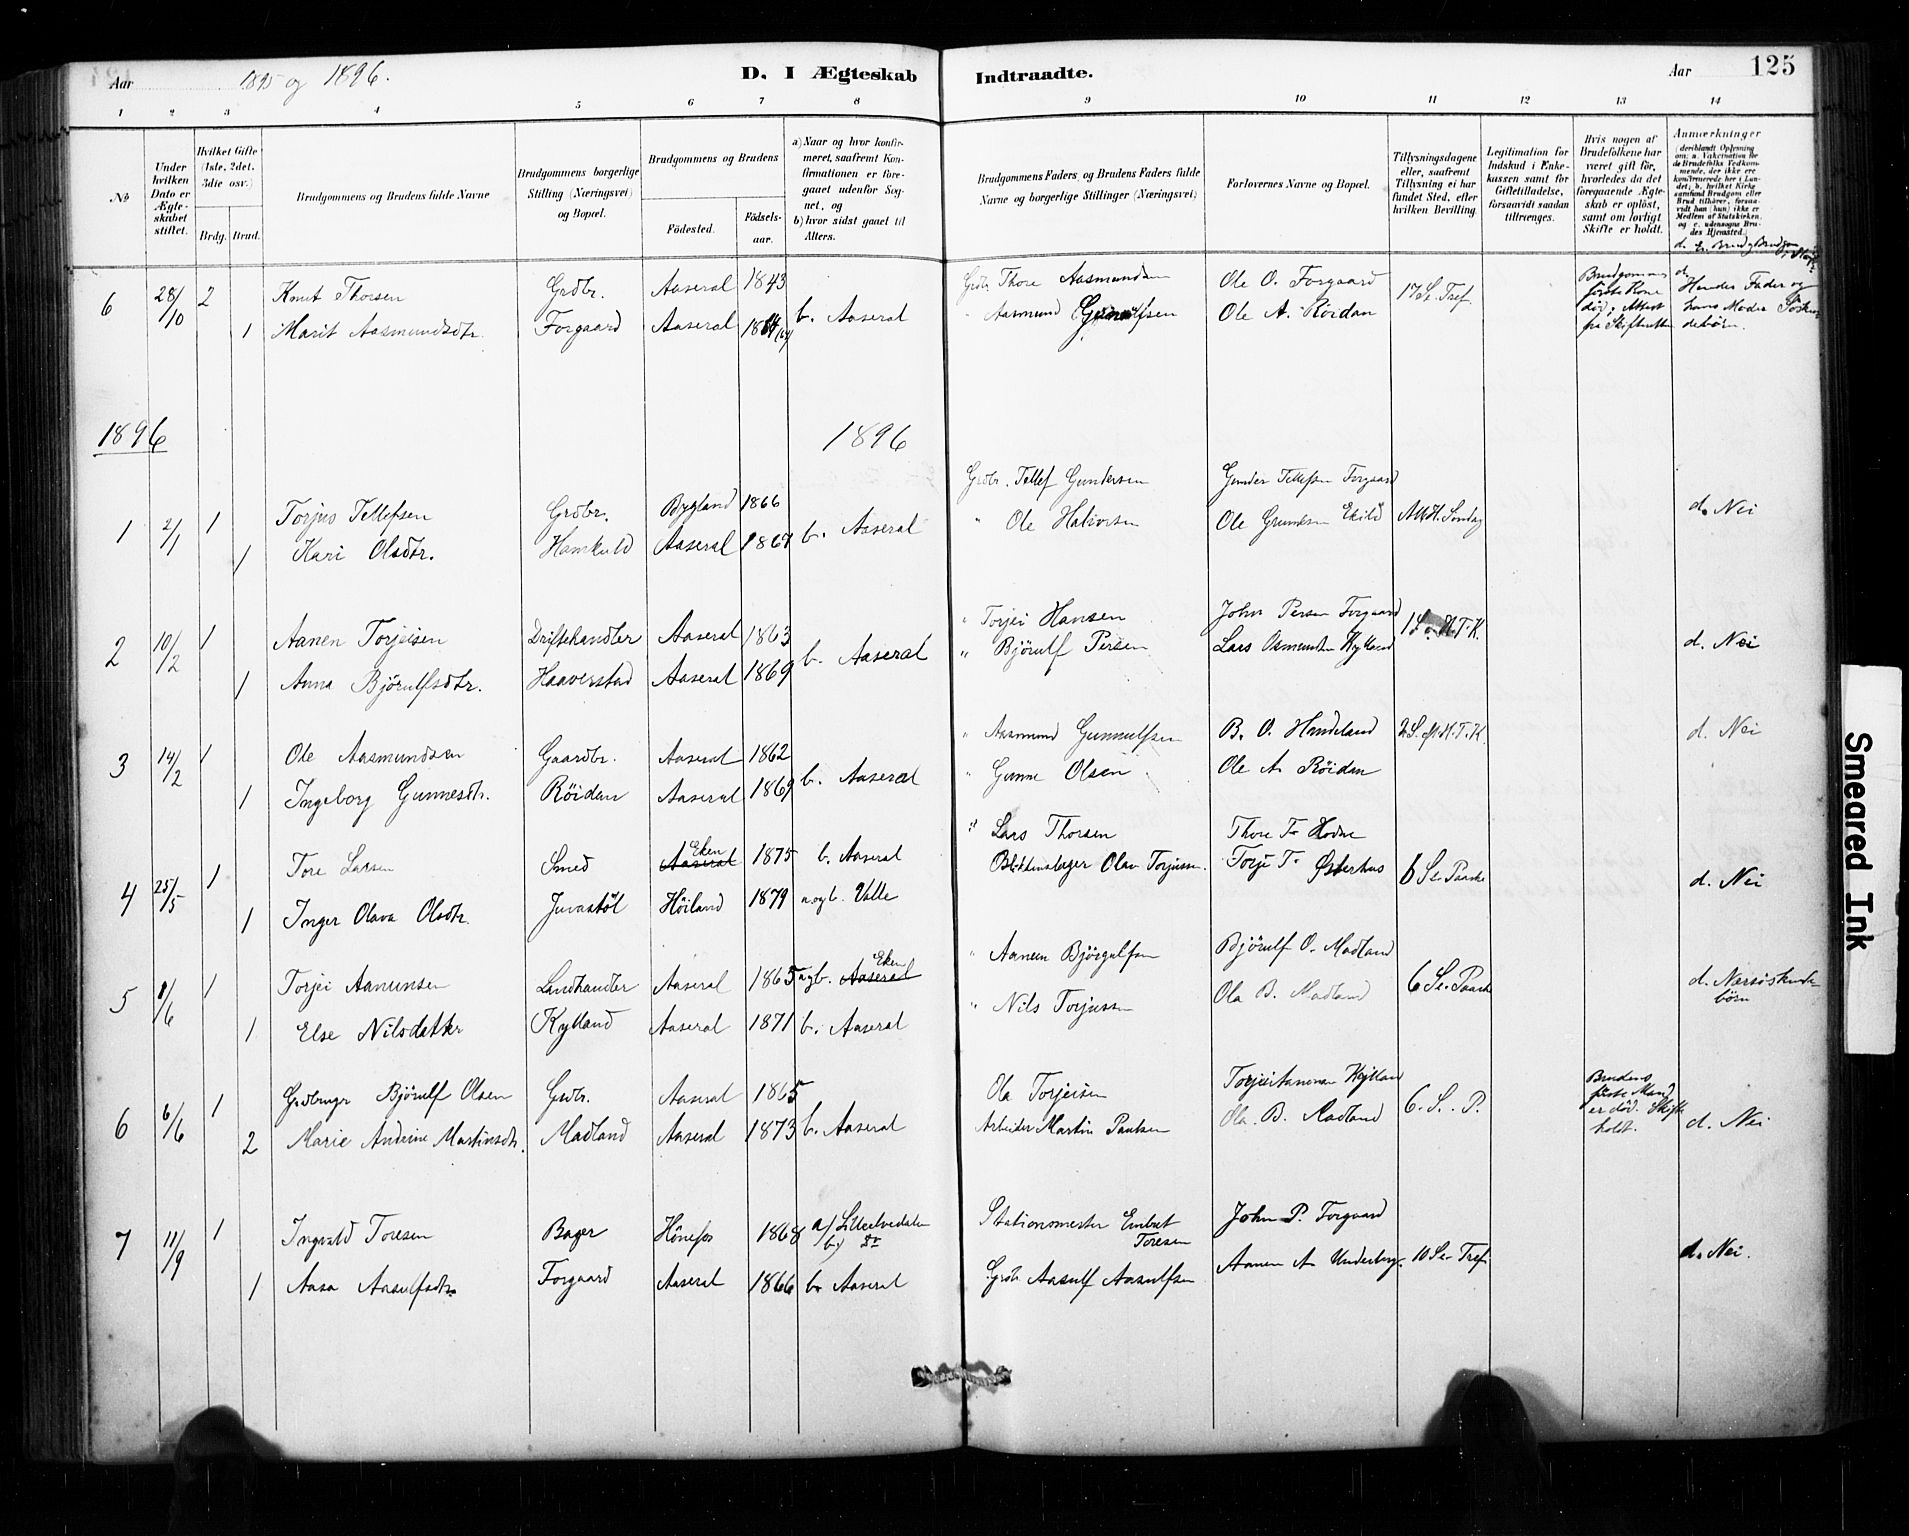 Aar 1895 og 1896. D. I Ægteskab Indtraadte. Aar 125
1 2 3 4 5 6 7 8 9 10 11 12 13 14
No
Under hvilken Dato er Ægteskabet stiftet.
Hvilket Gifte (1ste, 2det, 3die osv.)
Brdg. Brud.
Brudgommens og Brudens fulde Navne
Brudgommens borgerlige Stilling (Næringsvei) og Bopæl.
Brudgommens og Brudens
Fødested. Fødselsaar.
a) Naar og hvor konfirmeret, saafremt Konfirmationen er foregaaet udenfor Sognet, og
b) hvor sidst gaaet til Alters.
Brudgommens Faders og Brudens Faders fulde Navne og borgerlige Stillinger (Næringsvei)
Forlovernes Navne og Bopæl.
Tillysningsdagene eller, saafremt Tillysning ei har fundet Sted, efter hvilken Bevilling.
Legitimation for Indskud i Enkekassen samt for Giftetilladelse, forsaavidt saadan tiltrænges.
Hvis nogen af Brudefolkene har været gift før, hvorledes da det foregaaende Ægteskab er opløst, samt om lovligt Skifte er holdt.
Anmærkninger (deriblandt Oplysning om: a. Vakcination for de Brudefolks Vedkommende, der ikke ere konfirmerede her i Landet; b. hvilket Kirkesamfund Brudgom eller Brud tilhører, forsaavidt han (hun) ikke er Medlem af Statskirken, og c. udensogns Brudes Hjemsted.)
6 28/10 2 Knut Thorsen Grdbr. Aaseral 1843 Grdbr. Thore Aasmundsen Ole O. Forgaard 17 S. Tref. Brudgommens første Kone død; Attest fra Skifteretten d. Hendes Fader og hans Moder Søskendebørn.
1 Marit Aasmundsdtr. Forgaard Aaseral b. Aaseral Aasmund Ole A. Röidan
1896 1896
1 2/1 1 Torjus Tellefsen Grdbr. Bygland 1866 Grdbr. Tellef Gundersen Gunder Tellefsen Forgaard
1 Kari Olsdtr. Aaseral 1867 b. Aaseral " Ole Halvorsen Ole d. Nei
2 10/2 1 Aanen Torjeisen Driftehandler Aaseral 1863 " Torjei Hansen John Persen Forgaard
1 Anna Björulfsdtr. Haaverstad Aaseral 1869 b. Aaseral " Björulf Persen Lars Osmundsen Kylland d. Nei
3 14/2 1 Ole Aasmundsen Gaardbr. Aaseral 1862 " Aasmund Gunnulfsen B. O. Hendeland d. Nei
1 Ingeborg Gunnesdtr. Röidan Aaseral 1869 b. Aaseral " Gunne Olsen Ole A. Röidan
4 25/5 1 Tore Larsen Smed Aaseral Eken 1875 b. Aaseral " Lars Thorsen Thore T. Hodne
1 Inger Olava Olsdtr. Juvastöl Höiland 1879 a. og b. Valle Blikkenslager Olav Torjussen Torje T. Österhus 6 S. e. Paaske d. Nei
5 8/6 1 Torjei Aanunsen Landhandler Aaseral 1865 a og b. Aaseral Eken " Aanen Björgulfsen Björulf O. Madland 6 S. e. Paaske d. Næssöskendebörn
1 Else Nilsdatter Kylland Aaseral 1871 b. Aaseral " Nils Torjussen Ola B. Madland
6 6/6 1 Grdbruger Björulf Olsen Grdbr. Aaseral 1865 Ola Torjeisen Torjei Aanonsen Kylland 6. S. P. Brudens første Mand er död. Skifte holdt.
2 Marie Andrine Martinsdtr. Madland Aaseral 1873 b. Aaseral Arbeider Martin Paulsen Ola B. Madland d. Nei
7 11/9 1 Ingvald Toresen Bager Hönefos 1868 a/ Lilleelvedalen b/ do Stationsmester Embret Toresen John P. Forgaard
1 Aasa Aasulfsdtr. Forgaard Aaseral 1866 b. Aaseral Grdbr. Aasulf Aasulfsen Aanen A. Underberg. 10 S. e. Tref. d. Nei.
Smeared Ink